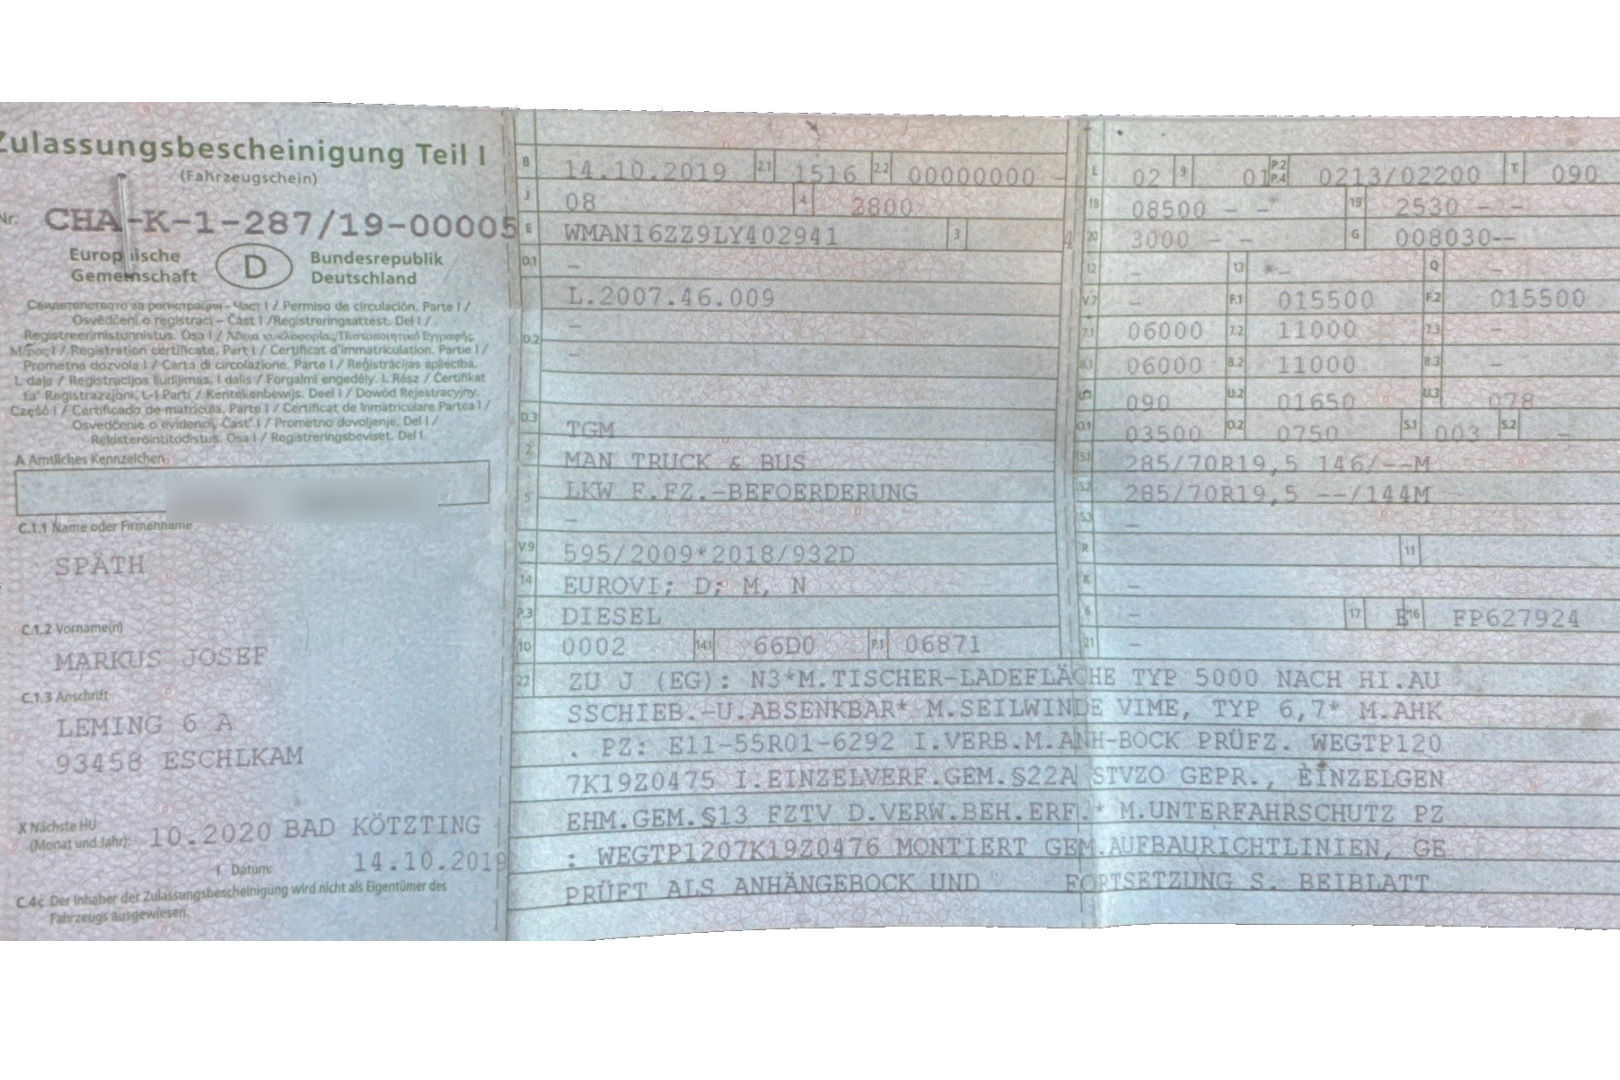 Zulassungsbescheinigung Teil I
(Fahrzeugschein)
Nr. CHA-K-1-287/19-00005
Europäische Gemeinschaft
D
Bundesrepublik Deutschland
Свидетелството за регистрация - Част I / Permiso de circulación. Parte I /
Osvědčení o registraci – Část I / Registreringsattest. Del I /
Registreerimistunnistus. Osa I / Άδεια κυκλοφορίας/Πιστοποιητικό Εγγραφής
Μέρος I / Registration certificate. Part I / Certificat d'immatriculation. Partie I /
Prometna dozvola I / Carta di circolazione. Parte I / Reģistrācijas apliecība.
I. daļa / Registracijos liudijimas. I dalis / Forgalmi engedély. I. Rész / Ċertifikat
ta' Reġistrazzjoni. L-I Parti / Kentekenbewijs. Deel I / Dowód Rejestracyjny.
Część I / Certificado de matrícula. Parte I / Certificat de înmatriculare Partea I /
Osvedčenie o evidencii. Časť I / Prometno dovoljenje. Del I /
Rekisteröintitodistus. Osa I / Registreringsbeviset. Del I
A Amtliches Kennzeichen
C.1.1 Name oder Firmenname
SPÄTH
C.1.2 Vorname(n)
MARKUS JOSEF
C.1.3 Anschrift
LEMING 6 A
93458 ESCHLKAM
X Nächste HU (Monat und Jahr): 10.2020 BAD KÖTZTING
I Datum: 14.10.2019
C.4c Der Inhaber der Zulassungsbescheinigung wird nicht als Eigentümer des
Fahrzeugs ausgewiesen.
B 14.10.2019 2.1 1516 2.2 00000000 -
J 08 4 2800
E WMAN16ZZ9LY402941 3 4
D.1 –
L.2007.46.009
D.2 –
–
D.3 TGM
2 MAN TRUCK & BUS
5 LKW F.FZ.-BEFOERDERUNG
–
V.9 595/2009*2018/932D
14 EUROVI; D; M, N
P.3 DIESEL
10 0002 14.1 66D0 P.1 06871
L 02 9 01 P.2 P.4 0213/02200 T 090
18 08500 – – 19 2530 – –
20 3000 – – G 008030--
12 – 13 – Q –
V.7 – F.1 015500 F.2 015500
7.1 06000 7.2 11000 7.3 –
8.1 06000 8.2 11000 8.3 –
U.1 090 U.2 01650 U.3 078
O.1 03500 O.2 0750 S.1 003 S.2 –
15.1 285/70R19,5 146/--M
15.2 285/70R19,5 --/144M
15.3 –
R 11
K –
6 – 17 E 16 FP627924
21 –
22 ZU J (EG): N3*M.TISCHER-LADEFLÄCHE TYP 5000 NACH HI.AU
SSCHIEB.-U.ABSENKBAR* M.SEILWINDE VIME, TYP 6,7* M.AHK
. PZ: E11-55R01-6292 I.VERB.M.ANH-BOCK PRÜFZ. WEGTP120
7K19Z0475 I.EINZELVERF.GEM.§22A STVZO GEPR., EINZELGEN
EHM.GEM.§13 FZTV D.VERW.BEH.ERF.* M.UNTERFAHRSCHUTZ PZ
: WEGTP1207K19Z0476 MONTIERT GEM.AUFBAURICHTLINIEN, GE
PRÜFT ALS ANHÄNGEBOCK UND FORTSETZUNG S. BEIBLATT